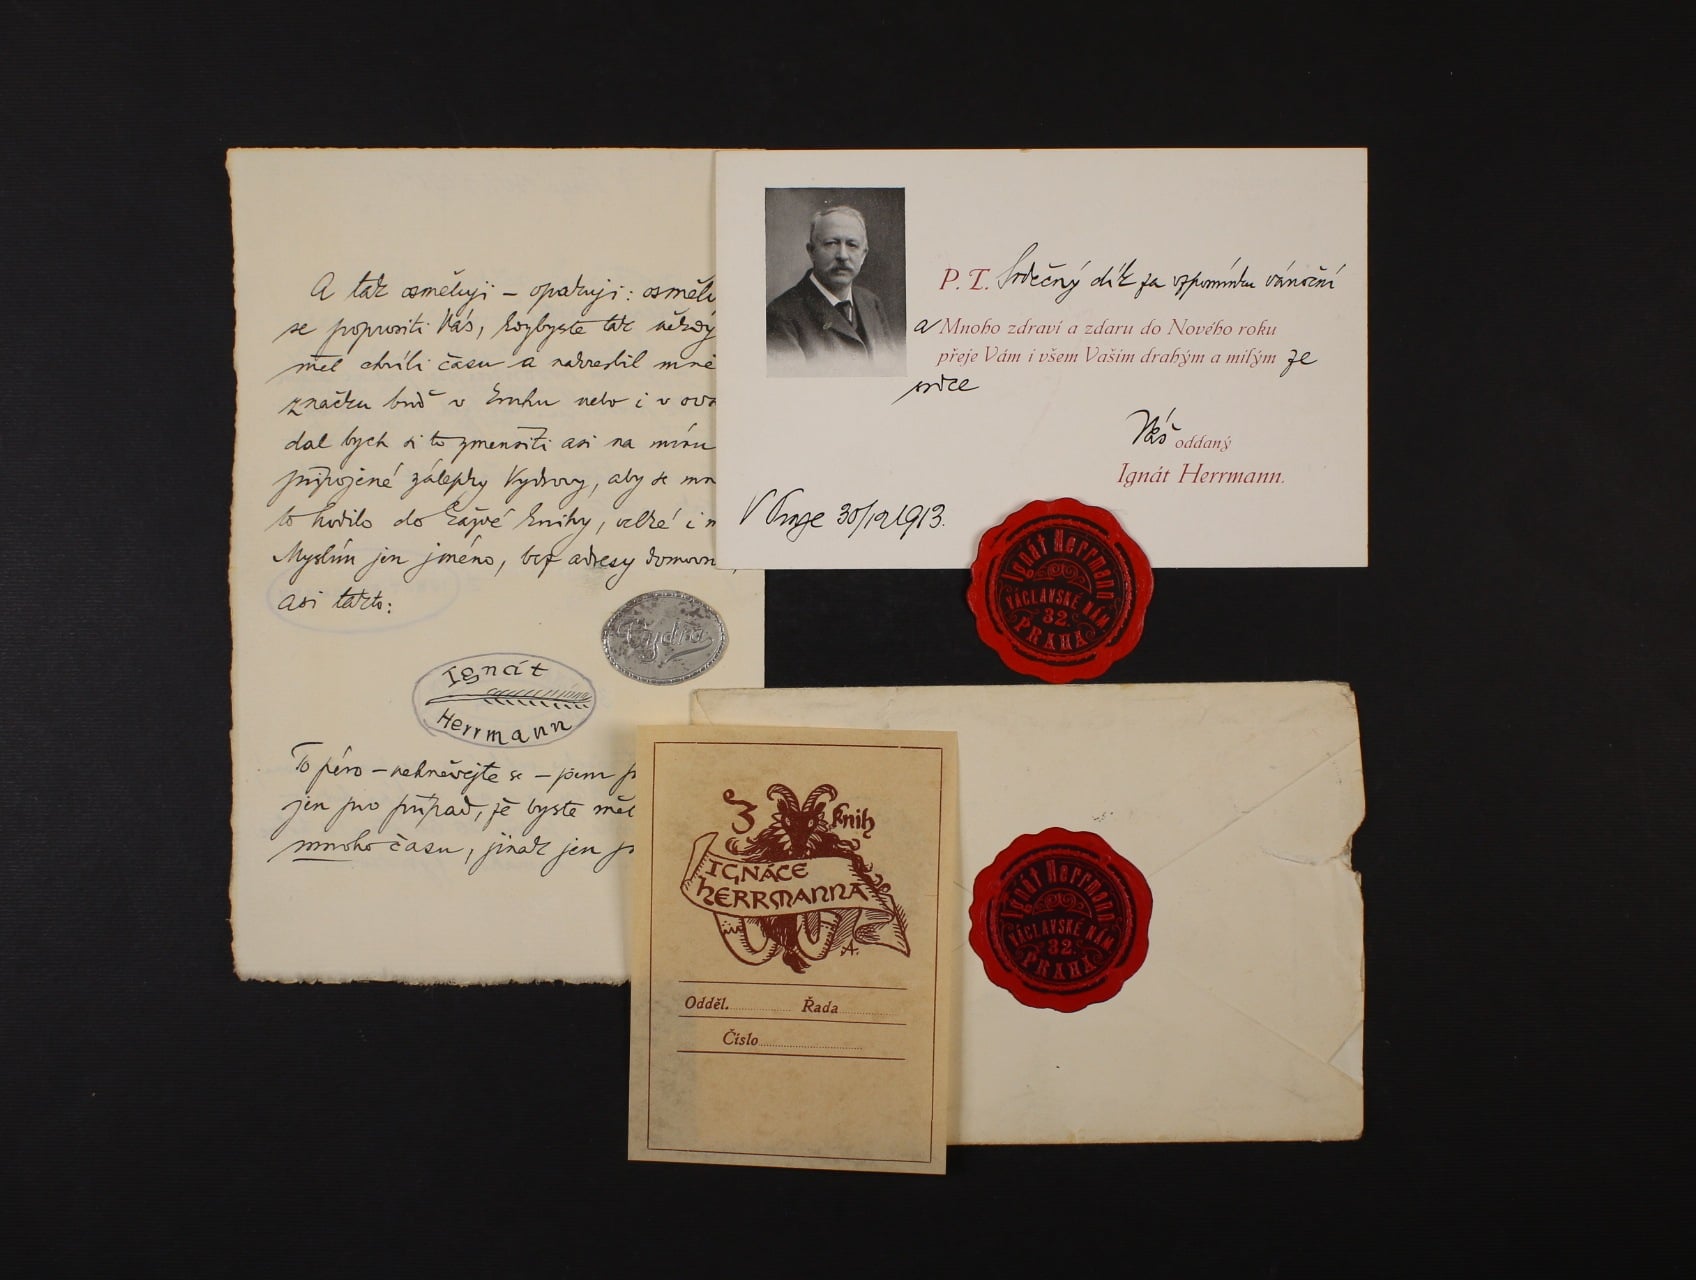 A tak osměluji – opakuji: osměluji
se poprositi Vás, kdybyste tak někdy
měl chvíli času a nakreslil mně
značku buď v kruhu nebo i v ová
dal bych si to zmenšiti asi na míru
připojené zálepky Vydrovy, aby se mn
to hodilo do každé knihy, velké i m
Myslím jen jméno, bez adresy domovní,
asi takto:
Vydra
Ignát
Herrmann
To péro – nehněvejte se – jsem
jen pro případ, že byste měl
mnoho času, jinak jen
P. T. Srdečný dík za vzpomínku vánoční
a Mnoho zdraví a zdaru do Nového roku
přeje Vám i všem Vašim drahým a milým ze
srdce
Váš oddaný
Ignát Herrmann.
V Praze 30/12 1913.
Ignát Herrmann
VÁCLAVSKÉ NÁM.
32.
PRAHA
Z knih
IGNÁCE
HERRMANNA
A.
Odděl. Řada
Číslo
Ignát Herrmann
VÁCLAVSKÉ NÁM.
32.
PRAHA